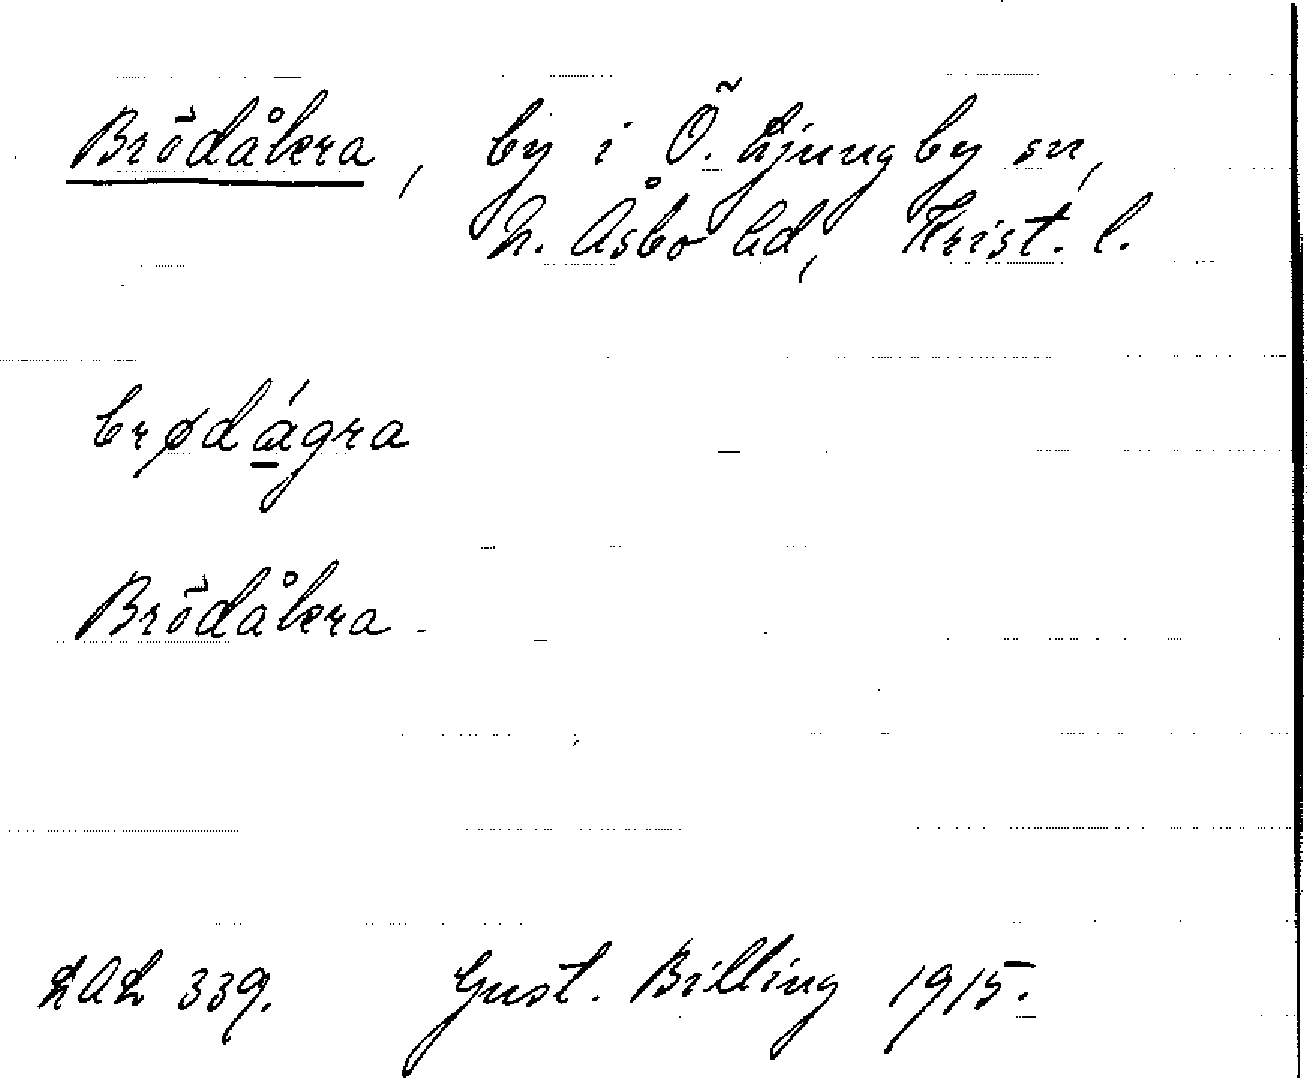 Brödåkra, by i Ö. Ljungby sn,
N. Åsbo hd, Krist. l.
brødágra
Brödåkra
LAL 339. Gust. Billing 1915.